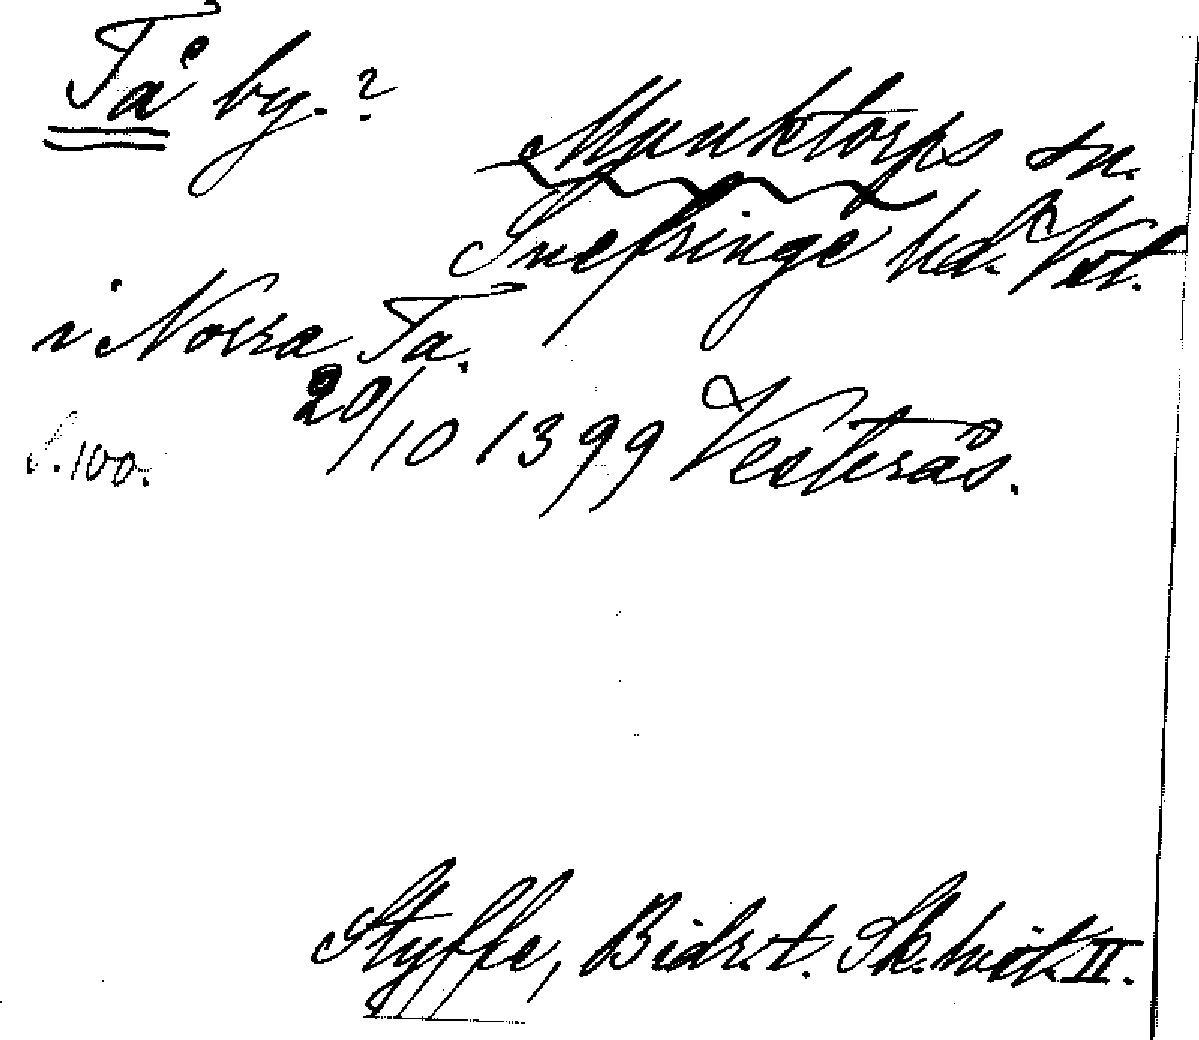 Tå by.?
Munktorps sn.
Snefringe hd. Vstm.
i Norra Ta.
20/10 1399 Vesterås.
S. 100.
Styffe, Bidr. t. Sk. hist. II.